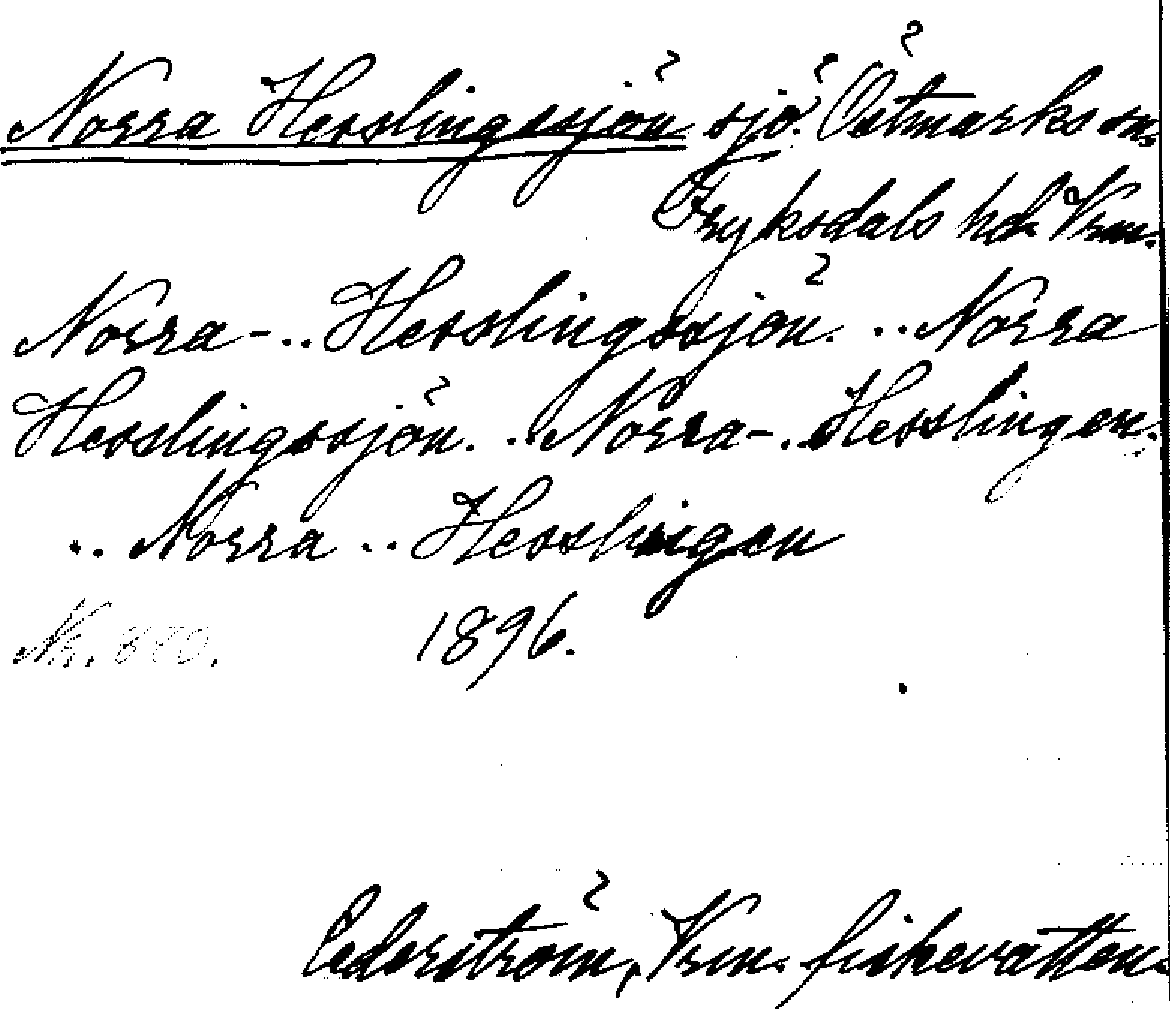 Norra Hersslingssjön sjö. Östmarks sn.
Fryksdals hd. Vrm.
Norra-.. Hersslingssjön. .. Norra
Hersslingssjön. .. Norra-.. Hersslingen.
.. Norra .. Hersslingen
Nr. 880. 1896.
Cederström, Vrm. fiskevatten.